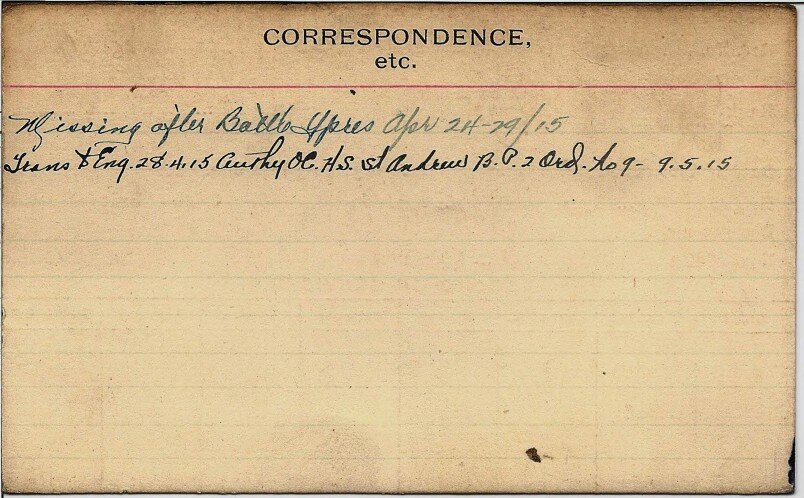 CORRESPONDENCE,
etc.
Missing after Battle Ypres Apr 24-29/15
Trans to Eng. 28.4.15 Authy OC. H.S. St Andrew B.P. 2 Ord. No 9 - 9.5.15